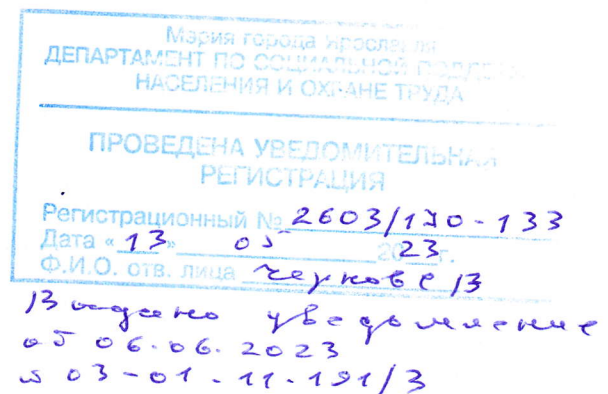 Мэрия города Ярославля
ДЕПАРТАМЕНТ ПО СОЦИАЛЬНОЙ ПОДДЕРЖКЕ
НАСЕЛЕНИЯ И ОХРАНЕ ТРУДА
ПРОВЕДЕНА УВЕДОМИТЕЛЬНАЯ
РЕГИСТРАЦИЯ
Регистрационный № 2603/170-133
Дата «13» 05 2023г.
Ф.И.О. отв. лица
уведомление
от 06.06.2023
№ 03-01-11-191/3